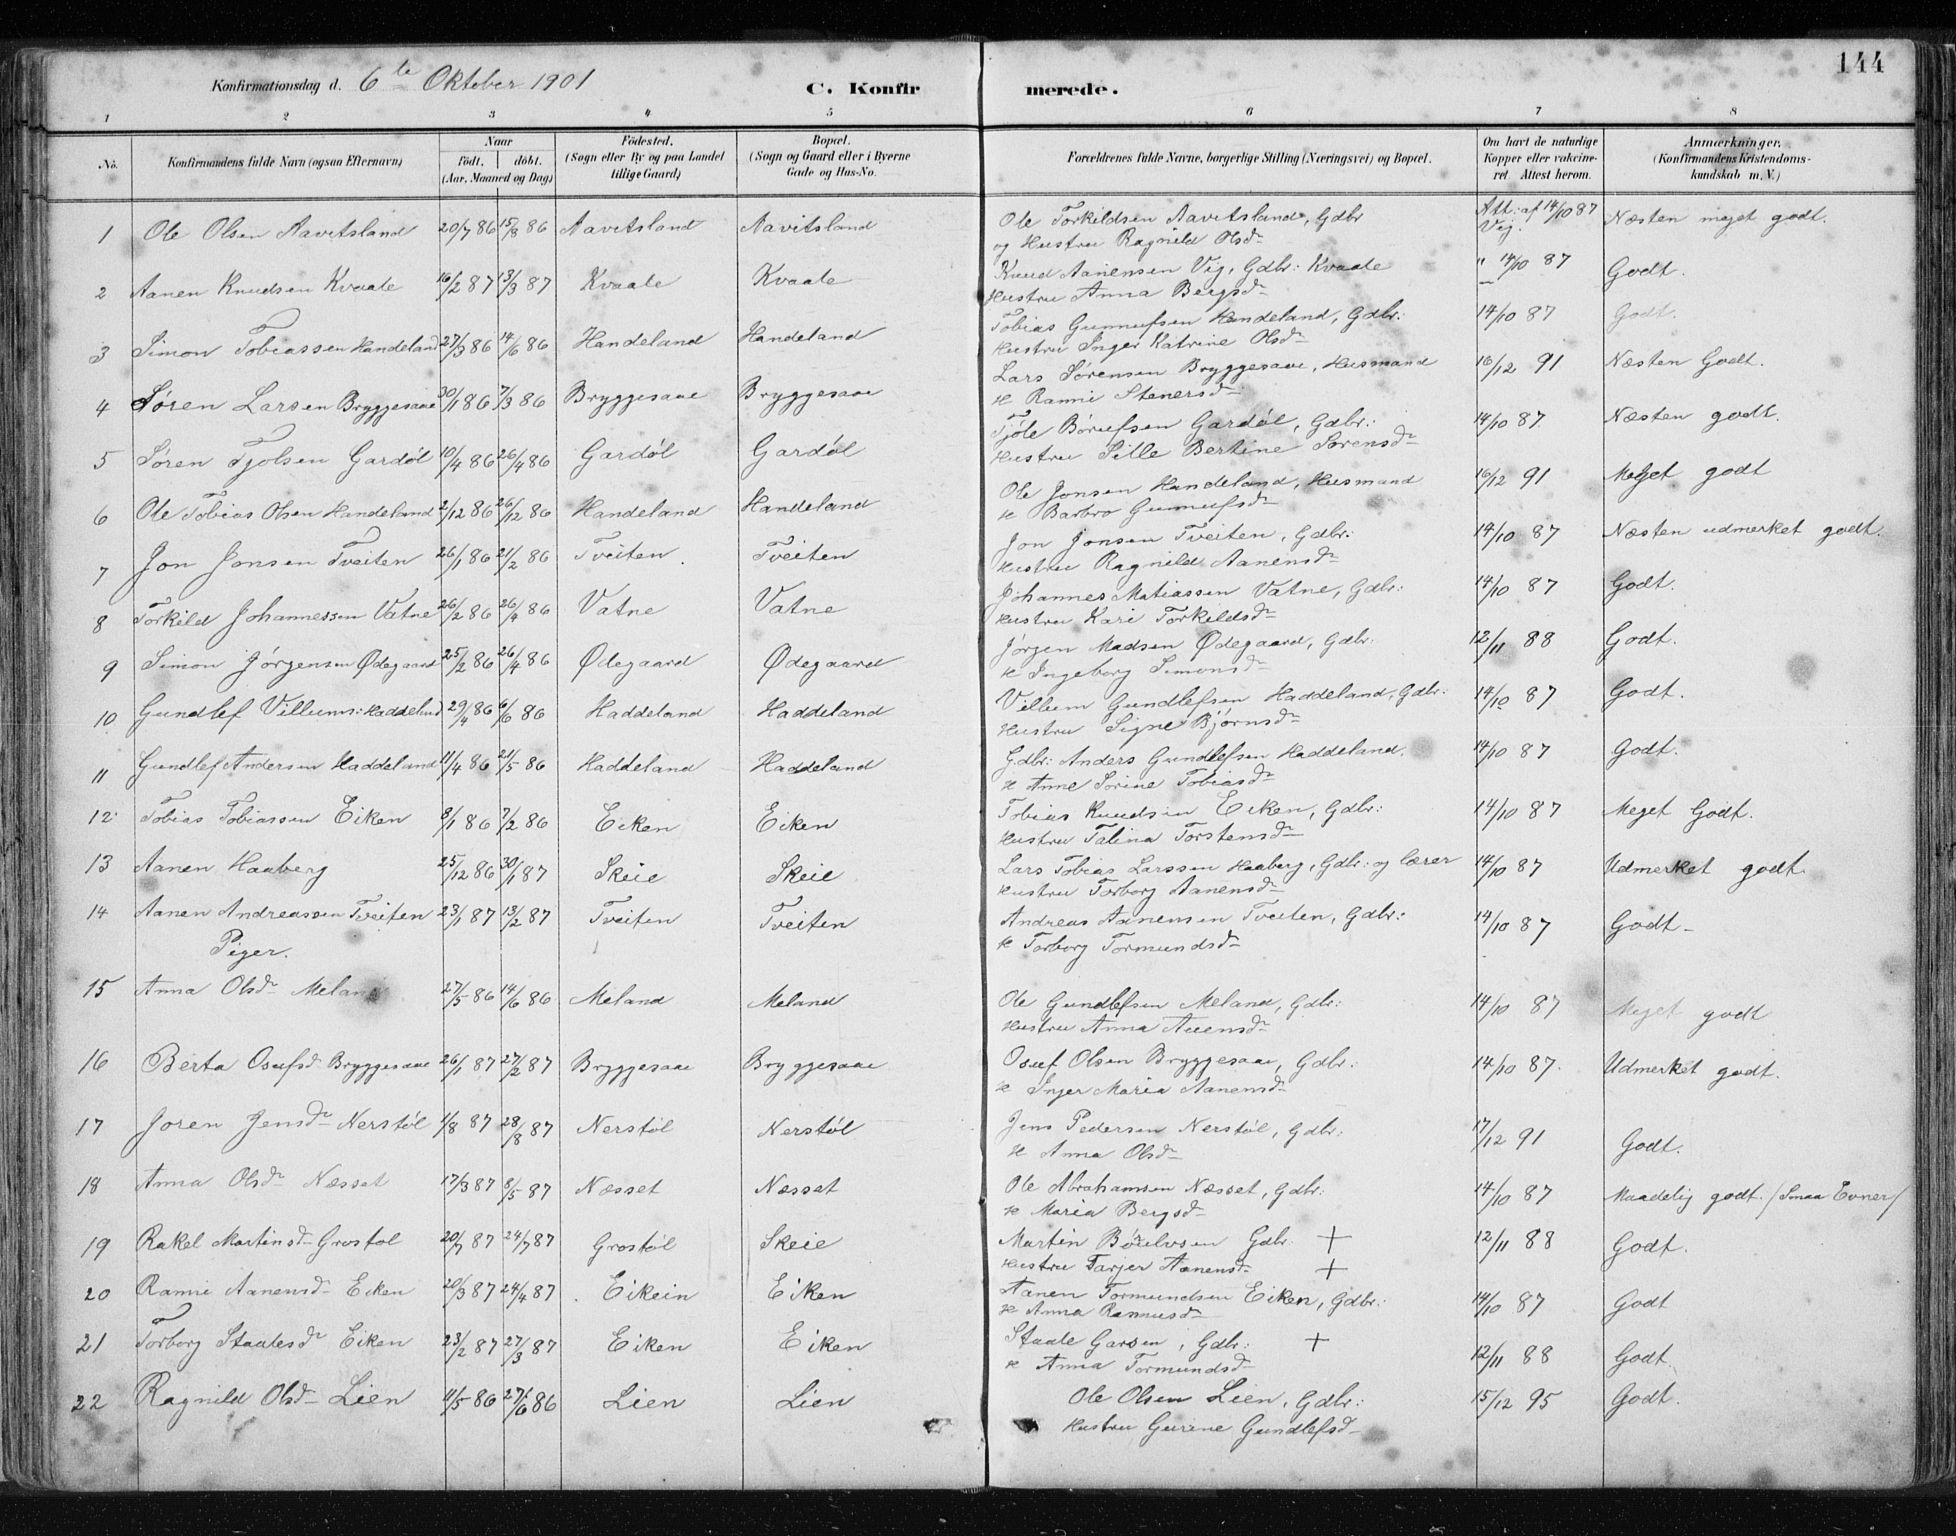 144
Konfirmationsdag d. 6te Oktober 1901 C. Konfirmerede.
1 2 3 4 5 6 7 8
No. Konfirmandens fulde Navn (ogsaa Efternavn) Naar født, døbt. (Aar, Maaned og Dag) Fødested. (Sogn eller By og paa Landet tillige Gaard) Bopæl. (Sogn og Gaard eller i Byerne Gade og Hus-No. Forældrenes fulde Navne, borgerlige Stilling (Næringsvei) og Bopæl. Om havt de naturlige Kopper eller vakcineret. Attest herom. Anmærkninger. (Konfirmandens Kristendomskundskab m. V.)
1 Ole Olsen Aavitsland 20/7 86 15/8 86 Aavitsland Aavitsland Ole Torkildsen Aavitsland, Gdbr Att: af 14/10 87 Næsten meget godt.
og Hustru Ragnild Olsdr Vig.
2 Aanen Knudsen Kvaale 16/2 87 13/3 87 Kvaale Kvaale Knud Aanensen Vig, Gdbr: Kvaale " 14/10 87 Godt.
Hustru Anna Bergsdr
3 Simon Tobiassen Handeland 27/3 86 14/6 86 Handeland Handeland Tobias Gunnufsen Handeland, Gdbr: 14/10 87 Godt.
Hustru Inger Katrine Olsdr
4 Søren Larsen Bryggesaae 30/1 86 7/3 86 Bryggesaae Bryggesaae Lars Sørensen Bryggesaae, Husmand 16/12 91 Næsten Godt.
H Rannei Stenersdr
5 Søren Tjølsen Gardøl 10/4 86 26/4 86 Gardøl Gardøl Tjøle Børufsen Gardøl, Gdbr: 14/10 87. Næsten godt.
Hustru Sille Bertine Sørensdr
6 Ole Tobias Olsen Handeland 2/12 86 26/12 86 Handeland Handeland Ole Jonsen Handeland, Husmand 16/12 91 Meget godt
H Barbro Gunnufsdr
7 Jon Jonsen Tveiten 26/1 86 21/2 86 Tveiten. Tveiten Jon Jonsen Tveiten, Gdbr: 14/10 87 Næsten udmerket godt.
Hustru Ragnild Aanensdr
8 Torkild Johannessen Vatne 26/2 86 26/4 86 Vatne Vatne Johannes Matiassen Vatne, Gdbr: 14/10 87 Godt.
Hustru Kari Torkildsdr
9 Simon Jørgensen Ødegaard 25/2 86 26/4 86 Ødegaard Ødegaard Jørgen Madsen Ødegaard, Gdbr: 12/11 88 Godt.
H Ingeborg Simonsdr
10 Gundlef Villums: Haddeland 29/4 86 6/6 86 Haddeland Haddeland Villum Gundlefsen Haddeland, Gdbr: 14/10 87 Godt.
Hustru Signe Bjørnsdr
11 Gundlef Andersen Haddeland 11/4 86 21/5 86 Haddeland Haddeland Gdbr: Anders Gundlefsen Haddeland. 14/10 87 Godt.
H Anne Sørine Tobiasdr
12 Tobias Tobiassen Eiken 8/1 86 7/2 86 Eiken Eiken Tobias Knudsen Eiken, Gdbr: 14/10 87 Meget Godt.
Hustru Talina Torstensdr
13 Aanen Haaberg 25/12 86 30/1 87 Skeie Skeie Lars Tobias Larssen Haaberg, Gdbr: og lærer 14/10 87 Udmerket godt.
Hustru Torborg Aanensdr
14 Aanen Andreassen Tveiten 23/1 87 13/2 87 Tveiten Tveiten Andreas Aanensen Tveiten, Gdbr: 14/10 87 Godt
H Torborg Tormundsdr
Piger.
15 Anna Olsdr Meland 27/5 86 14/6 86 Meland Meland Ole Gundlefsen Meland, Gdbr: 14/10 87 Meget godt
Hustru Anna Auensdr
16 Berta Osufsdr Bryggesaae 26/1 87 27/2 87 Bryggesaae Bryggesaae Osuf Olsen Bryggesaae, Gdbr: 14/10 87. Udmerket godt.
H Inger Maria Aanensdr
17 Joren Jensdr Nerstøl 1/8 87 28/8 87 Nerstøl Nerstøl Jens Pedersen Nerstøl, Gdbr: 17/12 91 Godt.
H Anna Olsdr
18 Anna Olsdr Næsset 17/3 87 8/5 87 Næsset Næsset Ole Abrahamsen Næsset, Gdbr: 14/10 87 Maadelig godt. /Smaa Evner/
H Maria Bergsdr
19 Rakel Martinsdr Grostøl 20/7 87 24/7 87 Grostøl Skeie Martin Gdbr. + 12/11 88 Godt.
Hustru Tarjer Aanensdr +
20 Rannei Aanensdr Eiken 20/3 87 24/4 87 Eikein Eiken Aanen Tormundsen Eiken, Gdbr: 14/10 87 Godt
H Anna Rannusdr
21 Torborg Staalesdr Eiken 23/2 87 27/3 87 Eiken Eiken Staale Garsen, Gdbr: + 12/11 88 Godt.
H Anna Tormundsdr
22 Ragnild Olsdr Lien 11/5 86 27/6 86 Lien Lien Ole Olsen Lien, Gdbr: 15/12 95 Godt.
Hustru Gurine Gundlefsdr